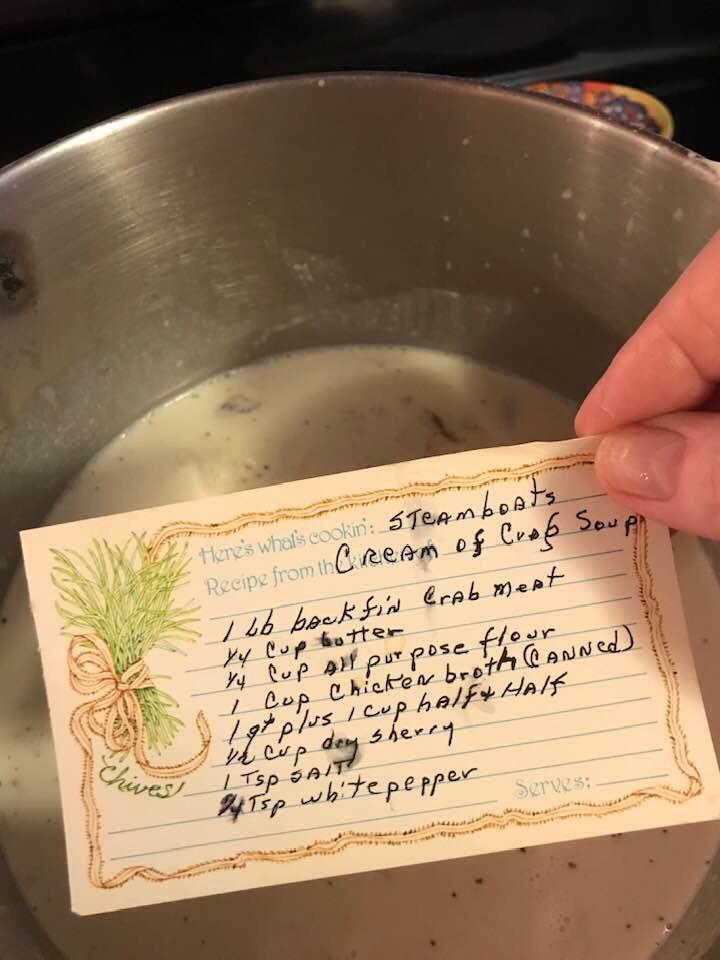 Here's what's cookin': STEAmboAts
Recipe from the kitchen CREAM of CrAb SouP
1 Lb bAckfin CrAb MEAt
1/4 Cup butter
1/4 Cup All purpose flour
1 Cup Chicken broth (CANNed)
1 qt plus 1 cup hAlf & HAlf
1/2 Cup dry sherry
1 Tsp SAlT
Tsp white pepper
Serves:
Chives